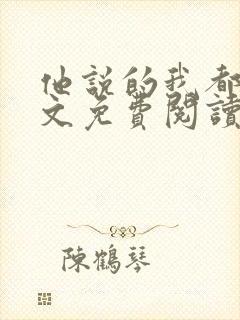 他説的我都
文免費閱讀
陳鶴琴